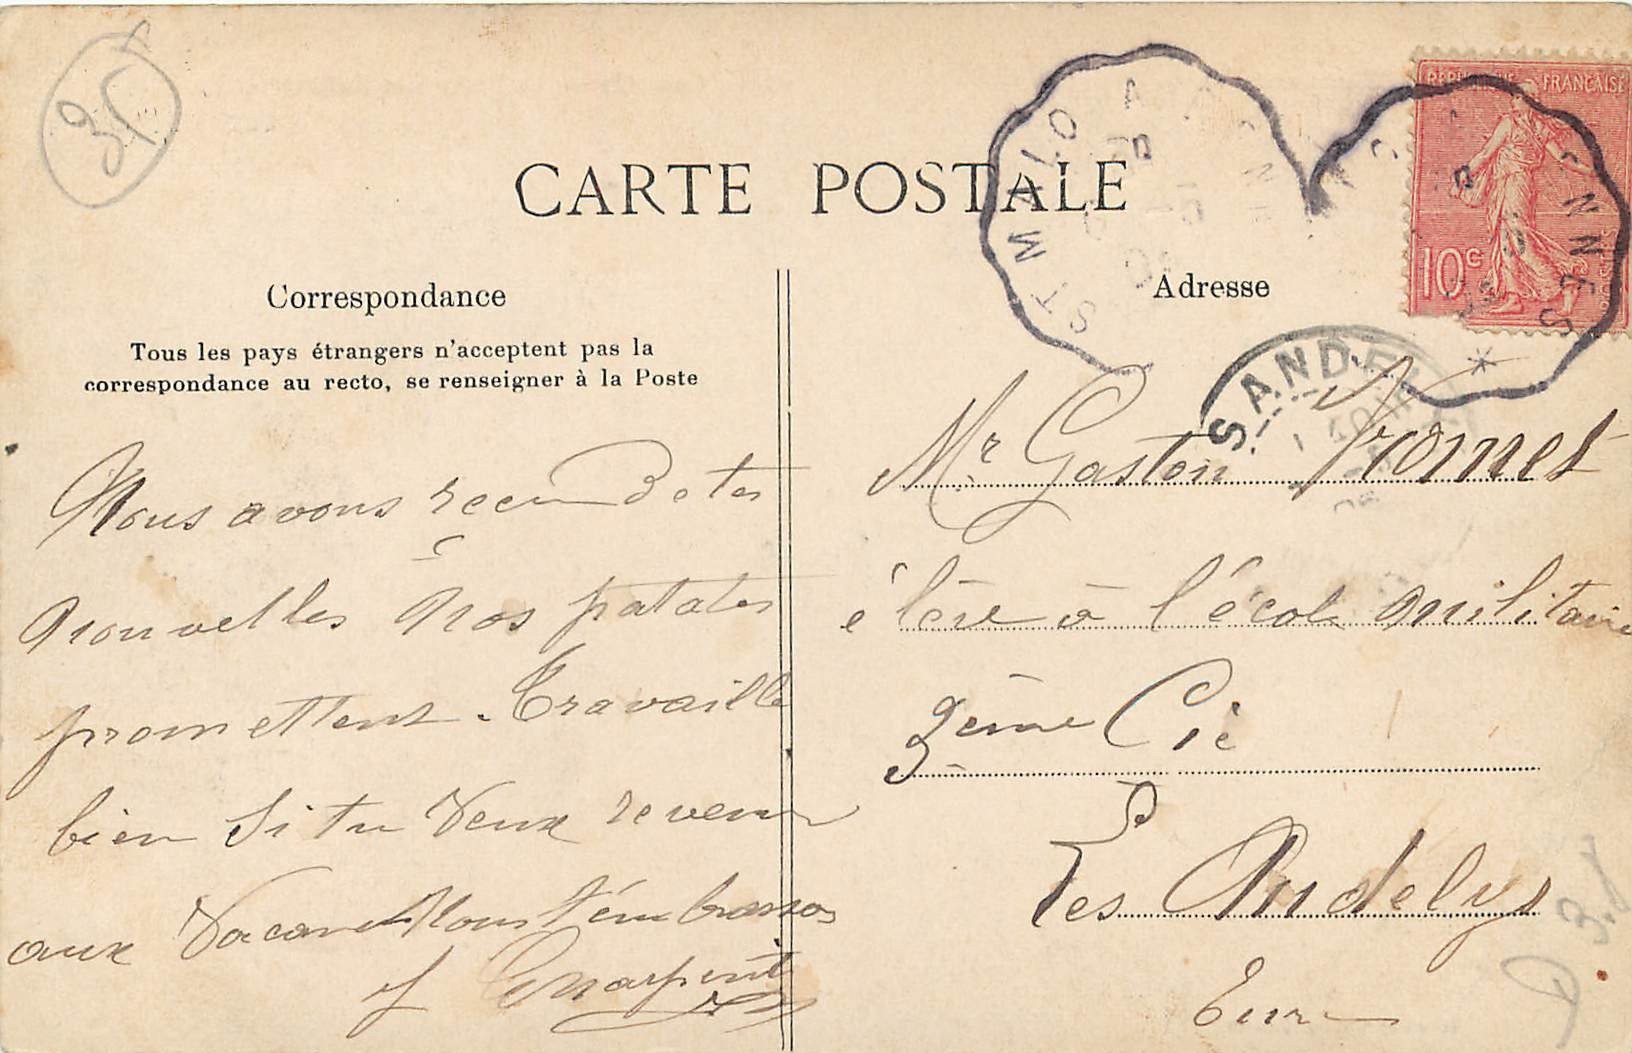 CARTE POSTALE
Correspondance
Tous les pays étrangers n'acceptent pas la
correspondance au recto, se renseigner à la Poste
Nous avons reçu de tes
nouvelles Nos patates
promettent. Travaille
bien Si tu veux revenir
aux Nous t'embrassos
Adresse
REPUBLIQUE FRANÇAISE
10c
ST MALO A
Mr Gaston
élève à l'école militaire
3ème Cie
Les Andelys
Eure